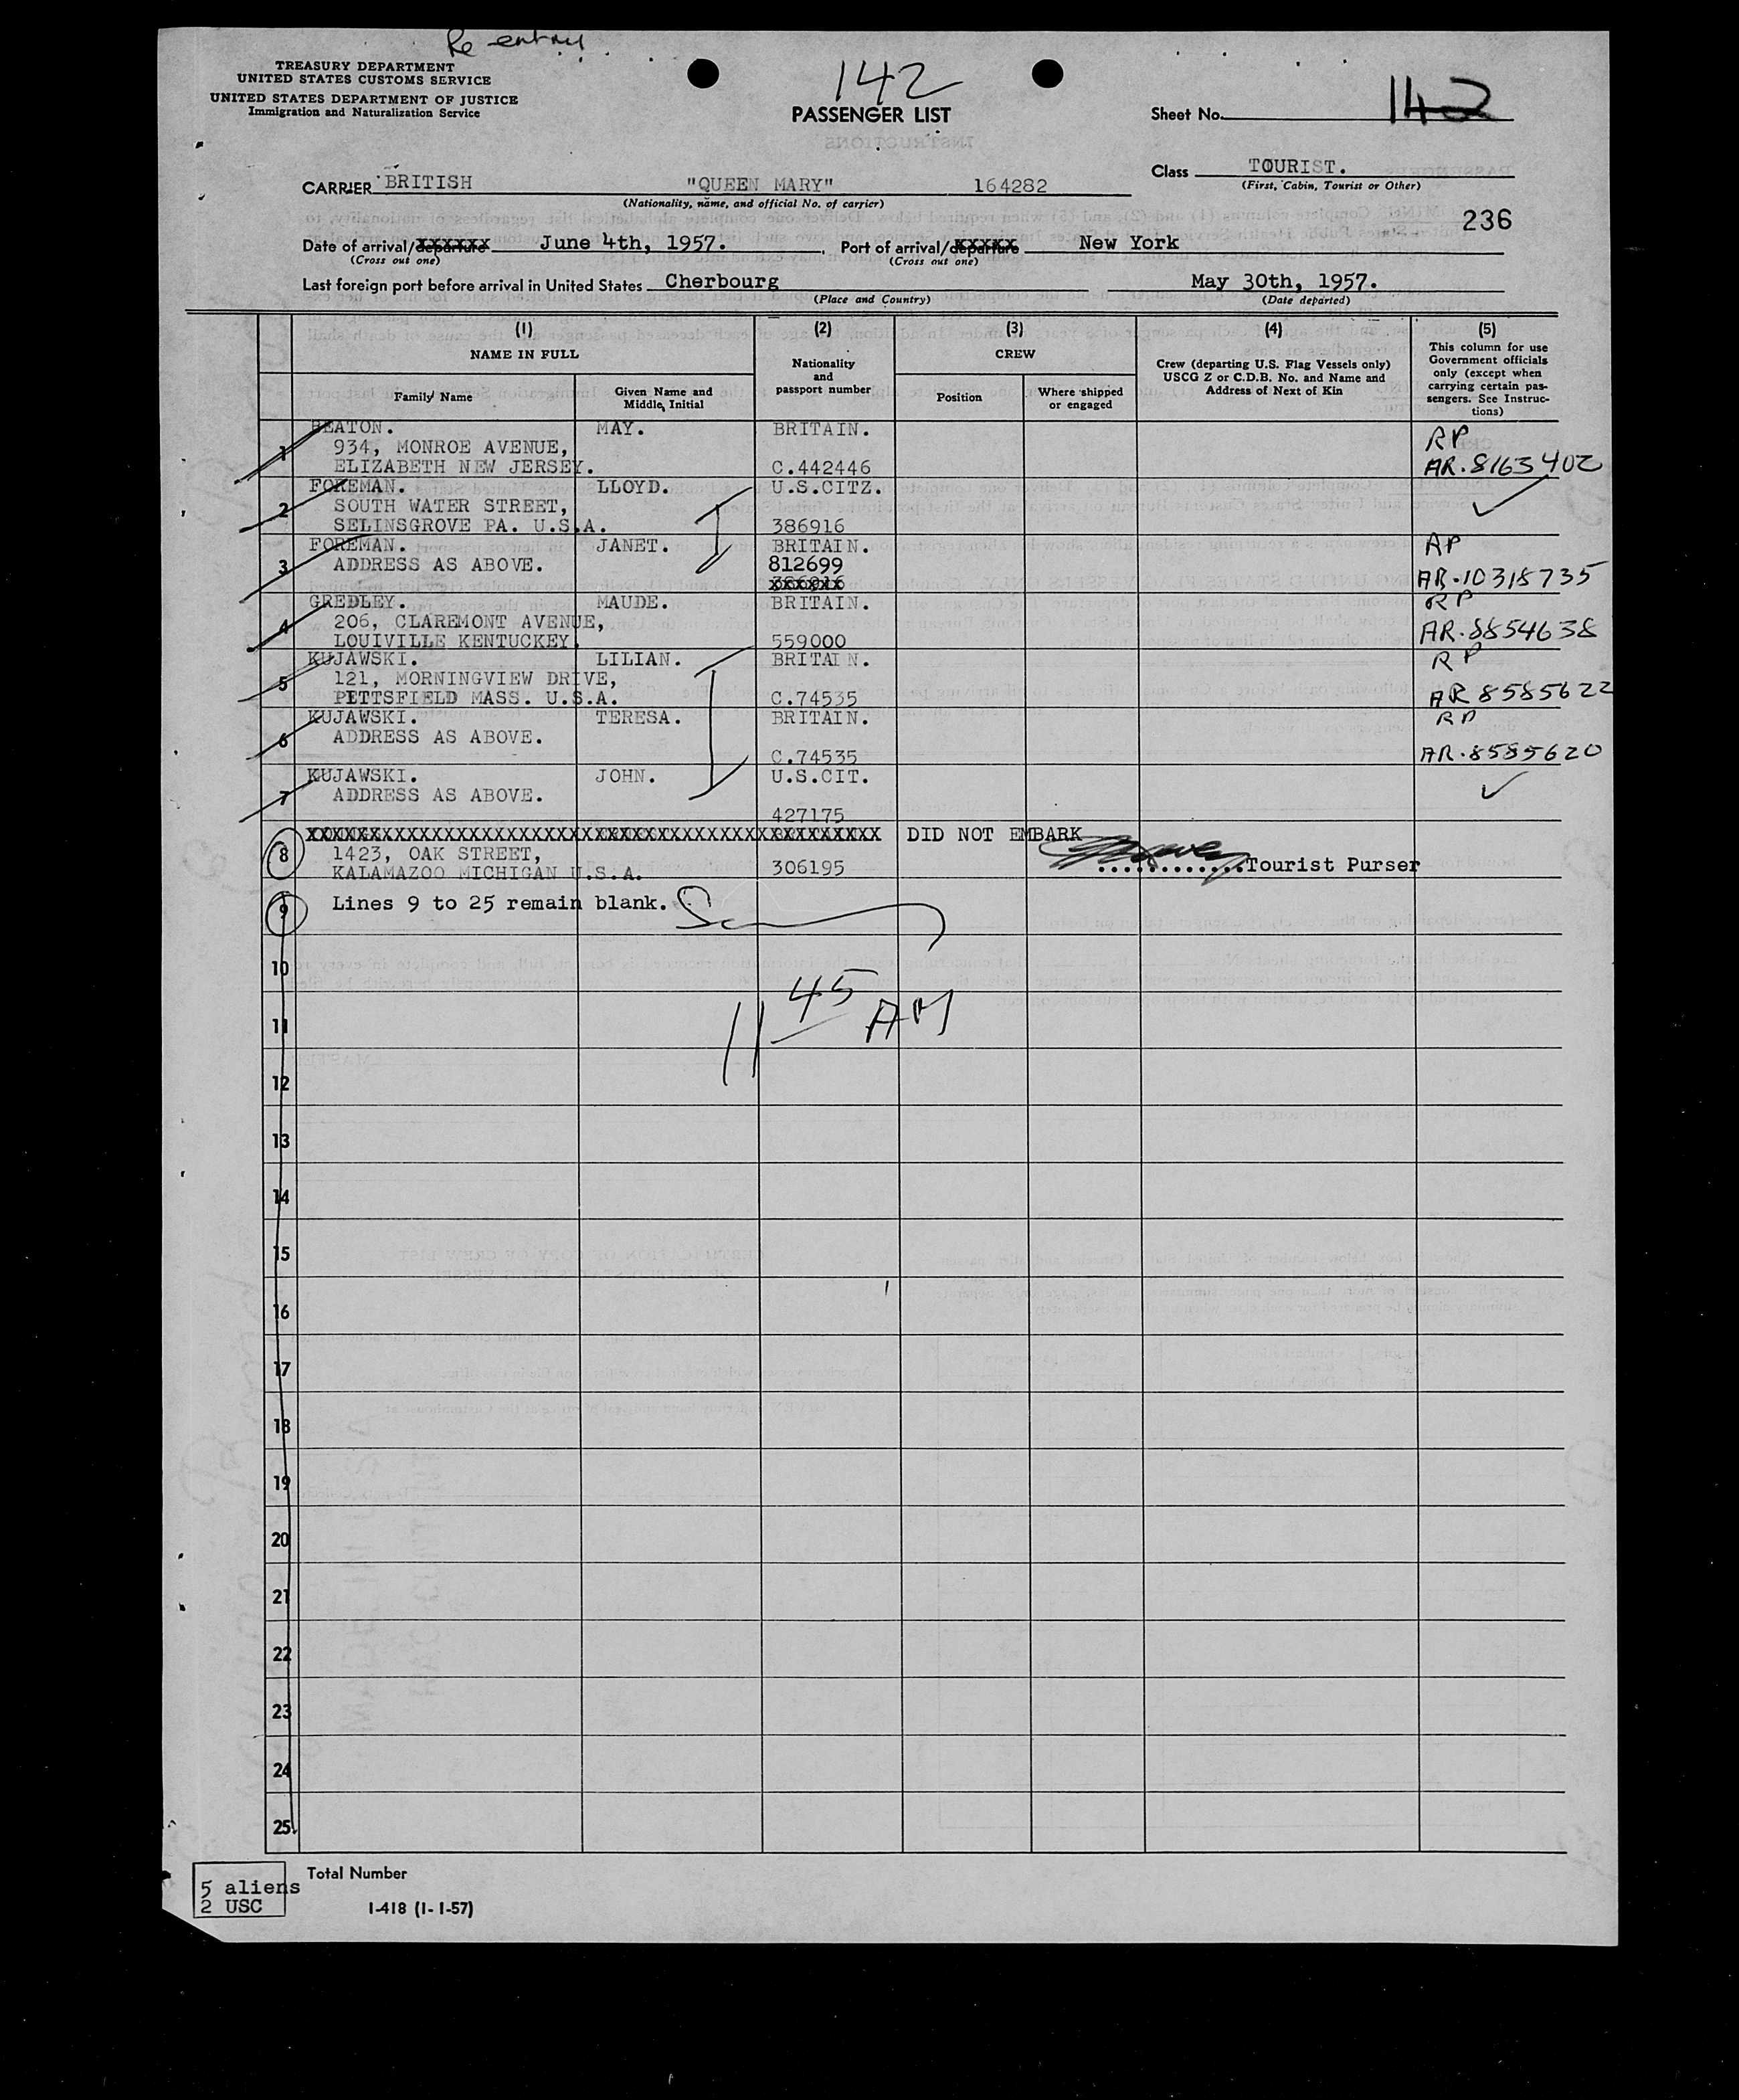 Re entry
TREASURY DEPARTMENT
UNITED STATES CUSTOMS SERVICE
UNITED STATES DEPARTMENT OF JUSTICE
Immigration and Naturalization Service
142
PASSENGER LIST
Sheet No. 142
Class TOURIST.
(First, Cabin, Tourist or Other)
CARRIER BRITISH "QUEEN MARY" 164282
(Nationality, name, and official No. of carrier)
236
Date of arrival/departure June 4th, 1957. Port of arrival/departure New York
(Cross out one) (Cross out one)
Last foreign port before arrival in United States Cherbourg May 30th, 1957.
(Place and Country) (Date departed)
(1) (2) (3) (4) (5)
NAME IN FULL
Family Name
Given Name and Middle Initial
Nationality and passport number
CREW
Position
Where shipped or engaged
Crew (departing U.S. Flag Vessels only)
USCG Z or C.D.B. No. and Name and
Address of Next of Kin
This column for use
Government officials
only (except when
carrying certain pas-
sengers. See Instruc-
tions)
1 HEATON. MAY. BRITAIN. RP
934, MONROE AVENUE,
ELIZABETH NEW JERSEY. C.442446 AR.8163402
2 FOREMAN. LLOYD. U.S.CITZ.
SOUTH WATER STREET,
SELINSGROVE PA. U.S.A. 386916
3 FOREMAN. JANET. BRITAIN. RP
ADDRESS AS ABOVE. 812699
386916 AR.10318735
4 GREDLEY. MAUDE. BRITAIN. RP
206, CLAREMONT AVENUE,
LOUIVILLE KENTUCKEY. 559000 AR.8854638
5 KUJAWSKI. LILIAN. BRITAIN. RP
121, MORNINGVIEW DRIVE,
PETTSFIELD MASS. U.S.A. C.74535 AR 8585622
6 KUJAWSKI. TERESA. BRITAIN. RP
ADDRESS AS ABOVE.
C.74535 AR.8585620
7 KUJAWSKI. JOHN. U.S.CIT.
ADDRESS AS ABOVE.
427175
8 XXXXXXXXXXXXXXXXXXXXXXXXXXXXXXXXXXXXXXXXXXXXXXX DID NOT EMBARK
1423, OAK STREET,
KALAMAZOO MICHIGAN U.S.A. 306195 ............Tourist Purser
9 Lines 9 to 25 remain blank.
10
11 45 AM
11
12
13
14
15
16
17
18
19
20
21
22
23
24
25
5 aliens
2 USC
Total Number
I-418 (1-1-57)